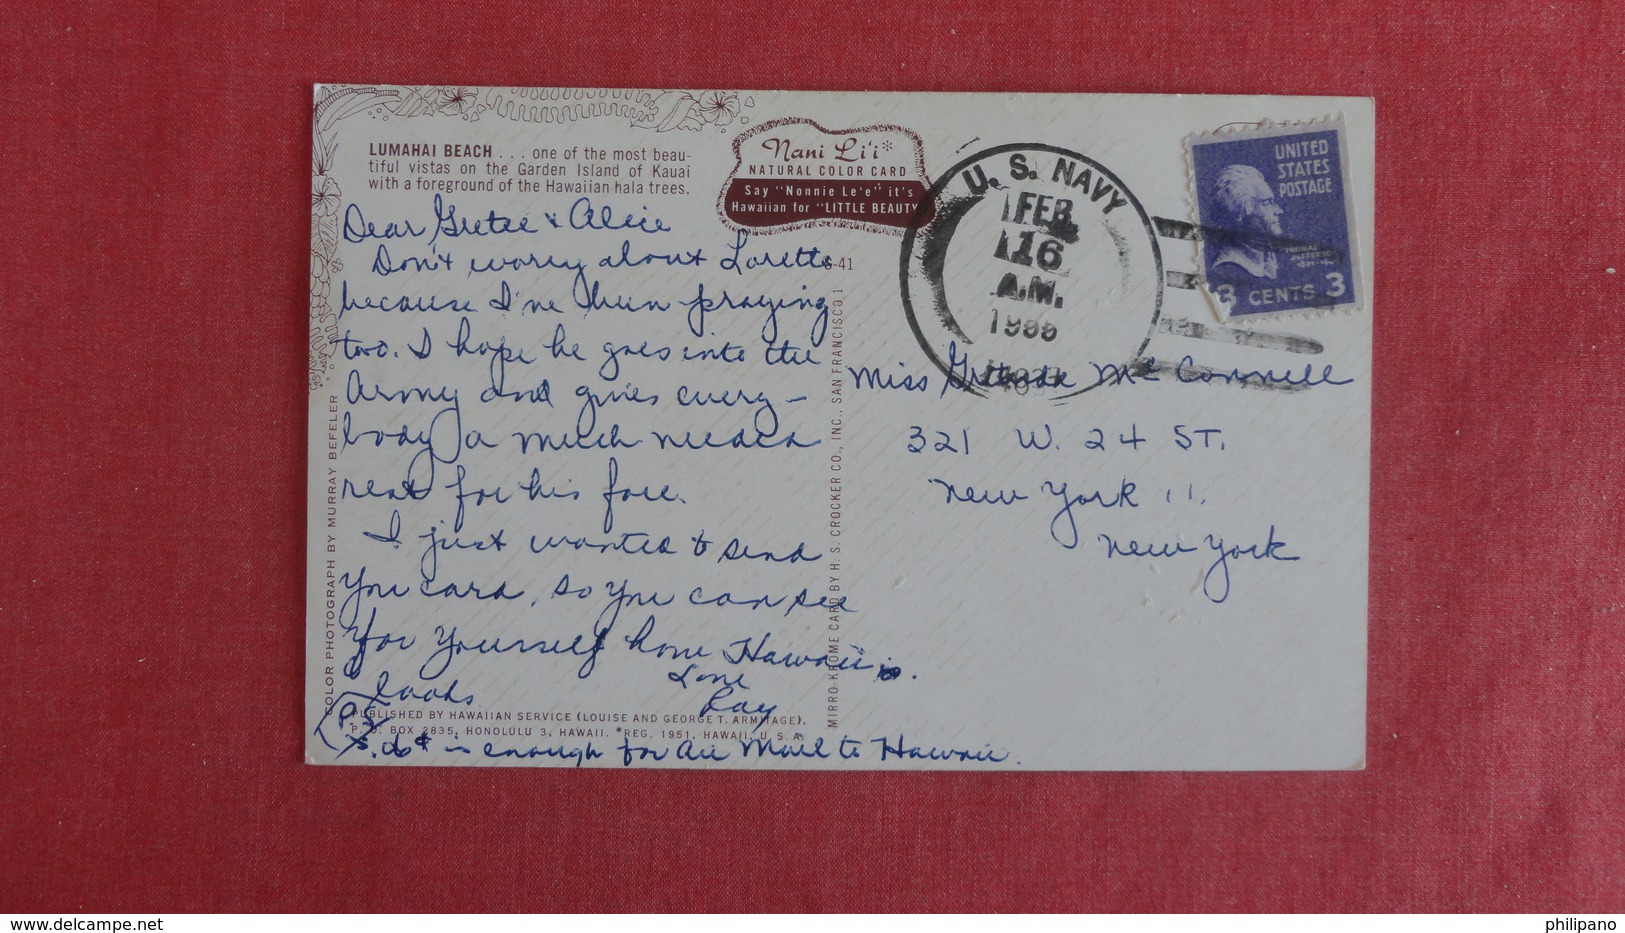 LUMAHAI BEACH . . . one of the most beau-
tiful vistas on the Garden Island of Kauai
with a foreground of the Hawaiian hala trees.
Nani Li'i*
NATURAL COLOR CARD
Say "Nonnie Le'e" it's
Hawaiian for "LITTLE BEAUTY"
Dear Gretee & Alice
Don't worry about Loretto
because I've been praying
too. I hope he goes into the
Army and gives every-
body a much needed
rest for his face.
I just wanted to send
you card, so you can see
for yourself how Hawaii is.
looks
Love
Ray
P.S.
6¢ is enough for Air Mail to Hawaii.
COLOR PHOTOGRAPH BY MURRAY BEFELER
PUBLISHED BY HAWAIIAN SERVICE (LOUISE AND GEORGE T. ARMITAGE).
P. O. BOX 2835, HONOLULU 3, HAWAII. *REG. 1951, HAWAII, U. S. A.
MIRRO-KROME CARD BY H. S. CROCKER CO., INC., SAN FRANCISCO 1
-41
U. S. NAVY
FEB
16
A.M.
UNITED
STATES
POSTAGE
THOMAS
JEFFERSON
3 CENTS 3
Miss Mc Connell
321 W. 24 ST.
New York 11.
New York
http://www.delcampe.net
philipano